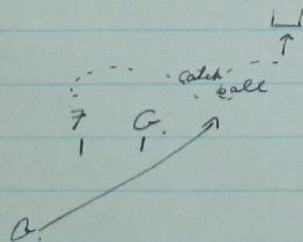 catch
ball
F G.
G.